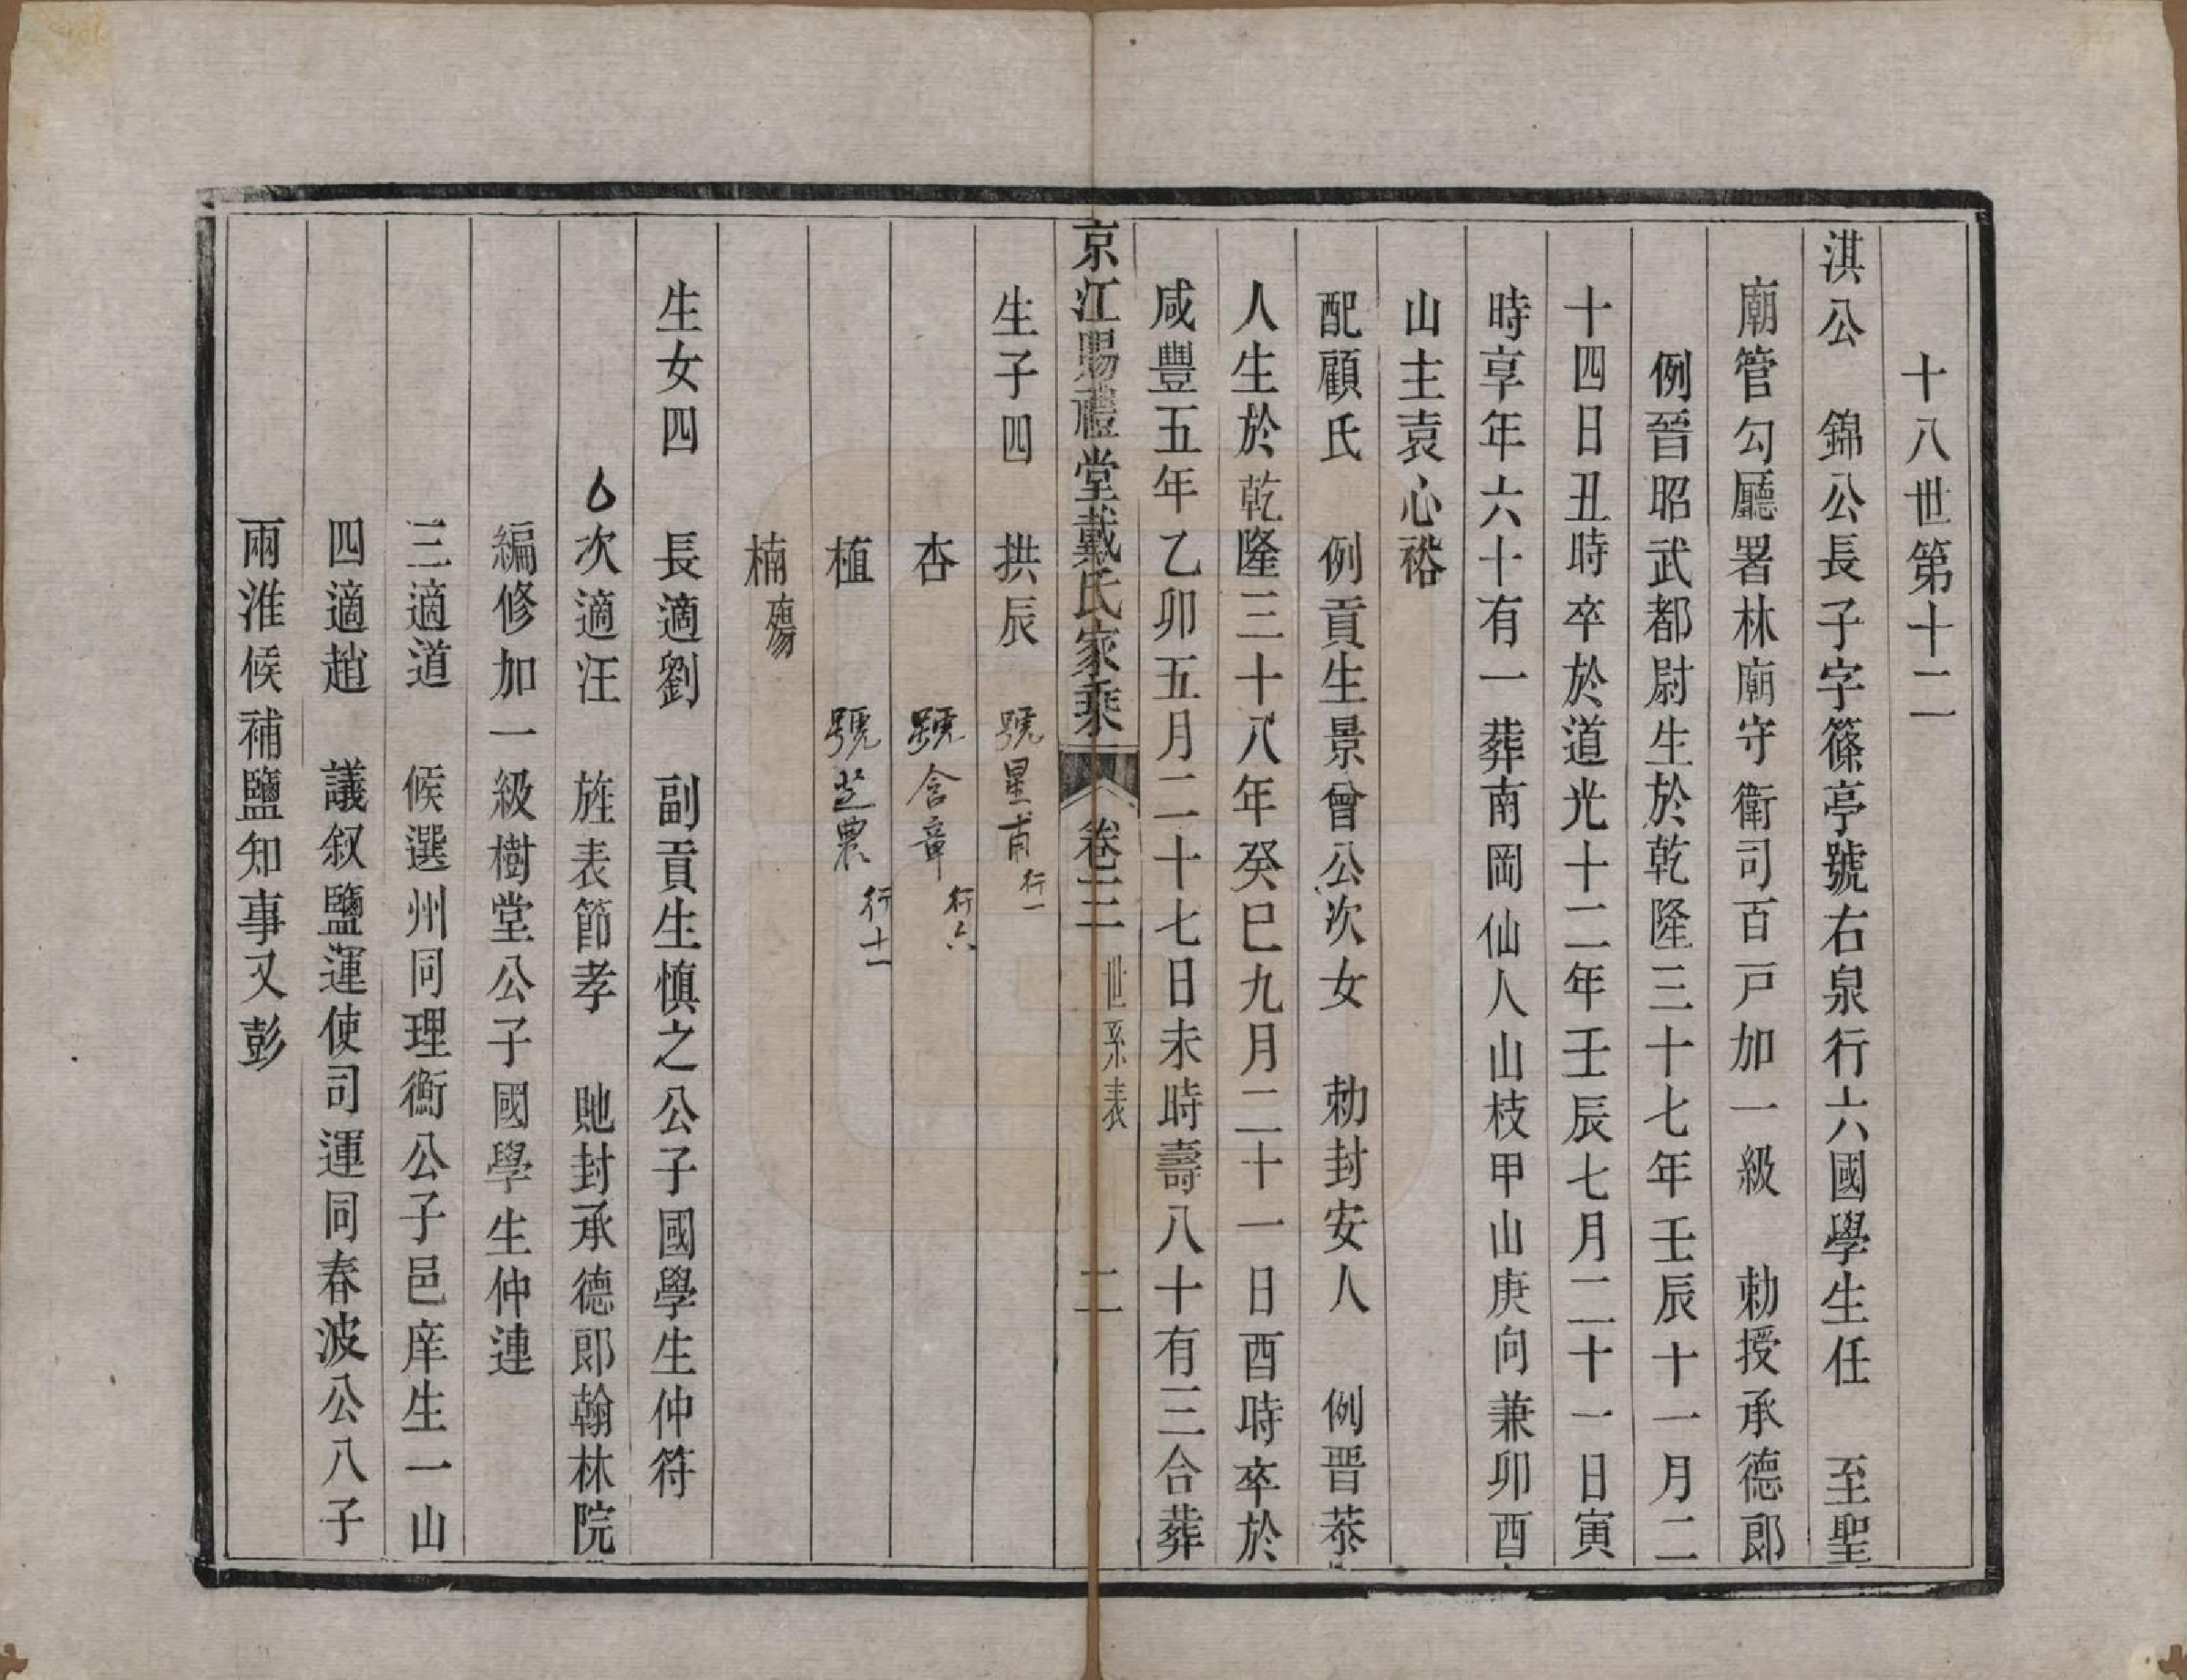 十八世第十二
淇公　錦公長子字篠亭號右泉行六國學生任　至聖
廟管勾廳署林廟守衛司百戸加一級　勅授承德郎
例晉昭武都尉生於乾隆三十七年壬辰十一月二
十四日丑時卒於道光十二年壬辰七月二十一日寅
時享年六十有一葬南岡仙人山枝甲山庚向兼卯酉
山主袁心裕
配顧氏　例貢生景曾公次女　勅封安人　例晋恭
人生於乾隆三十八年癸巳九月二十一日酉時卒於
咸豐五年乙卯五月二十七日未時壽八十有三合葬
京江賜禮堂戴氏家乘　卷三　世系表　二
生子四　拱辰　號星甫　行一
杏　號含章　行六
植　號芝農　行十一
楠　殤
生女四　長適劉　副貢生慎之公子國學生仲符
次適汪　旌表節孝　貤封承德郎翰林院
編修加一級樹堂公子國學生仲連
三適道　候選州同理衡公子邑庠生一山
四適趙　議叙鹽運使司運同春波公八子
兩淮候補鹽知事又彭